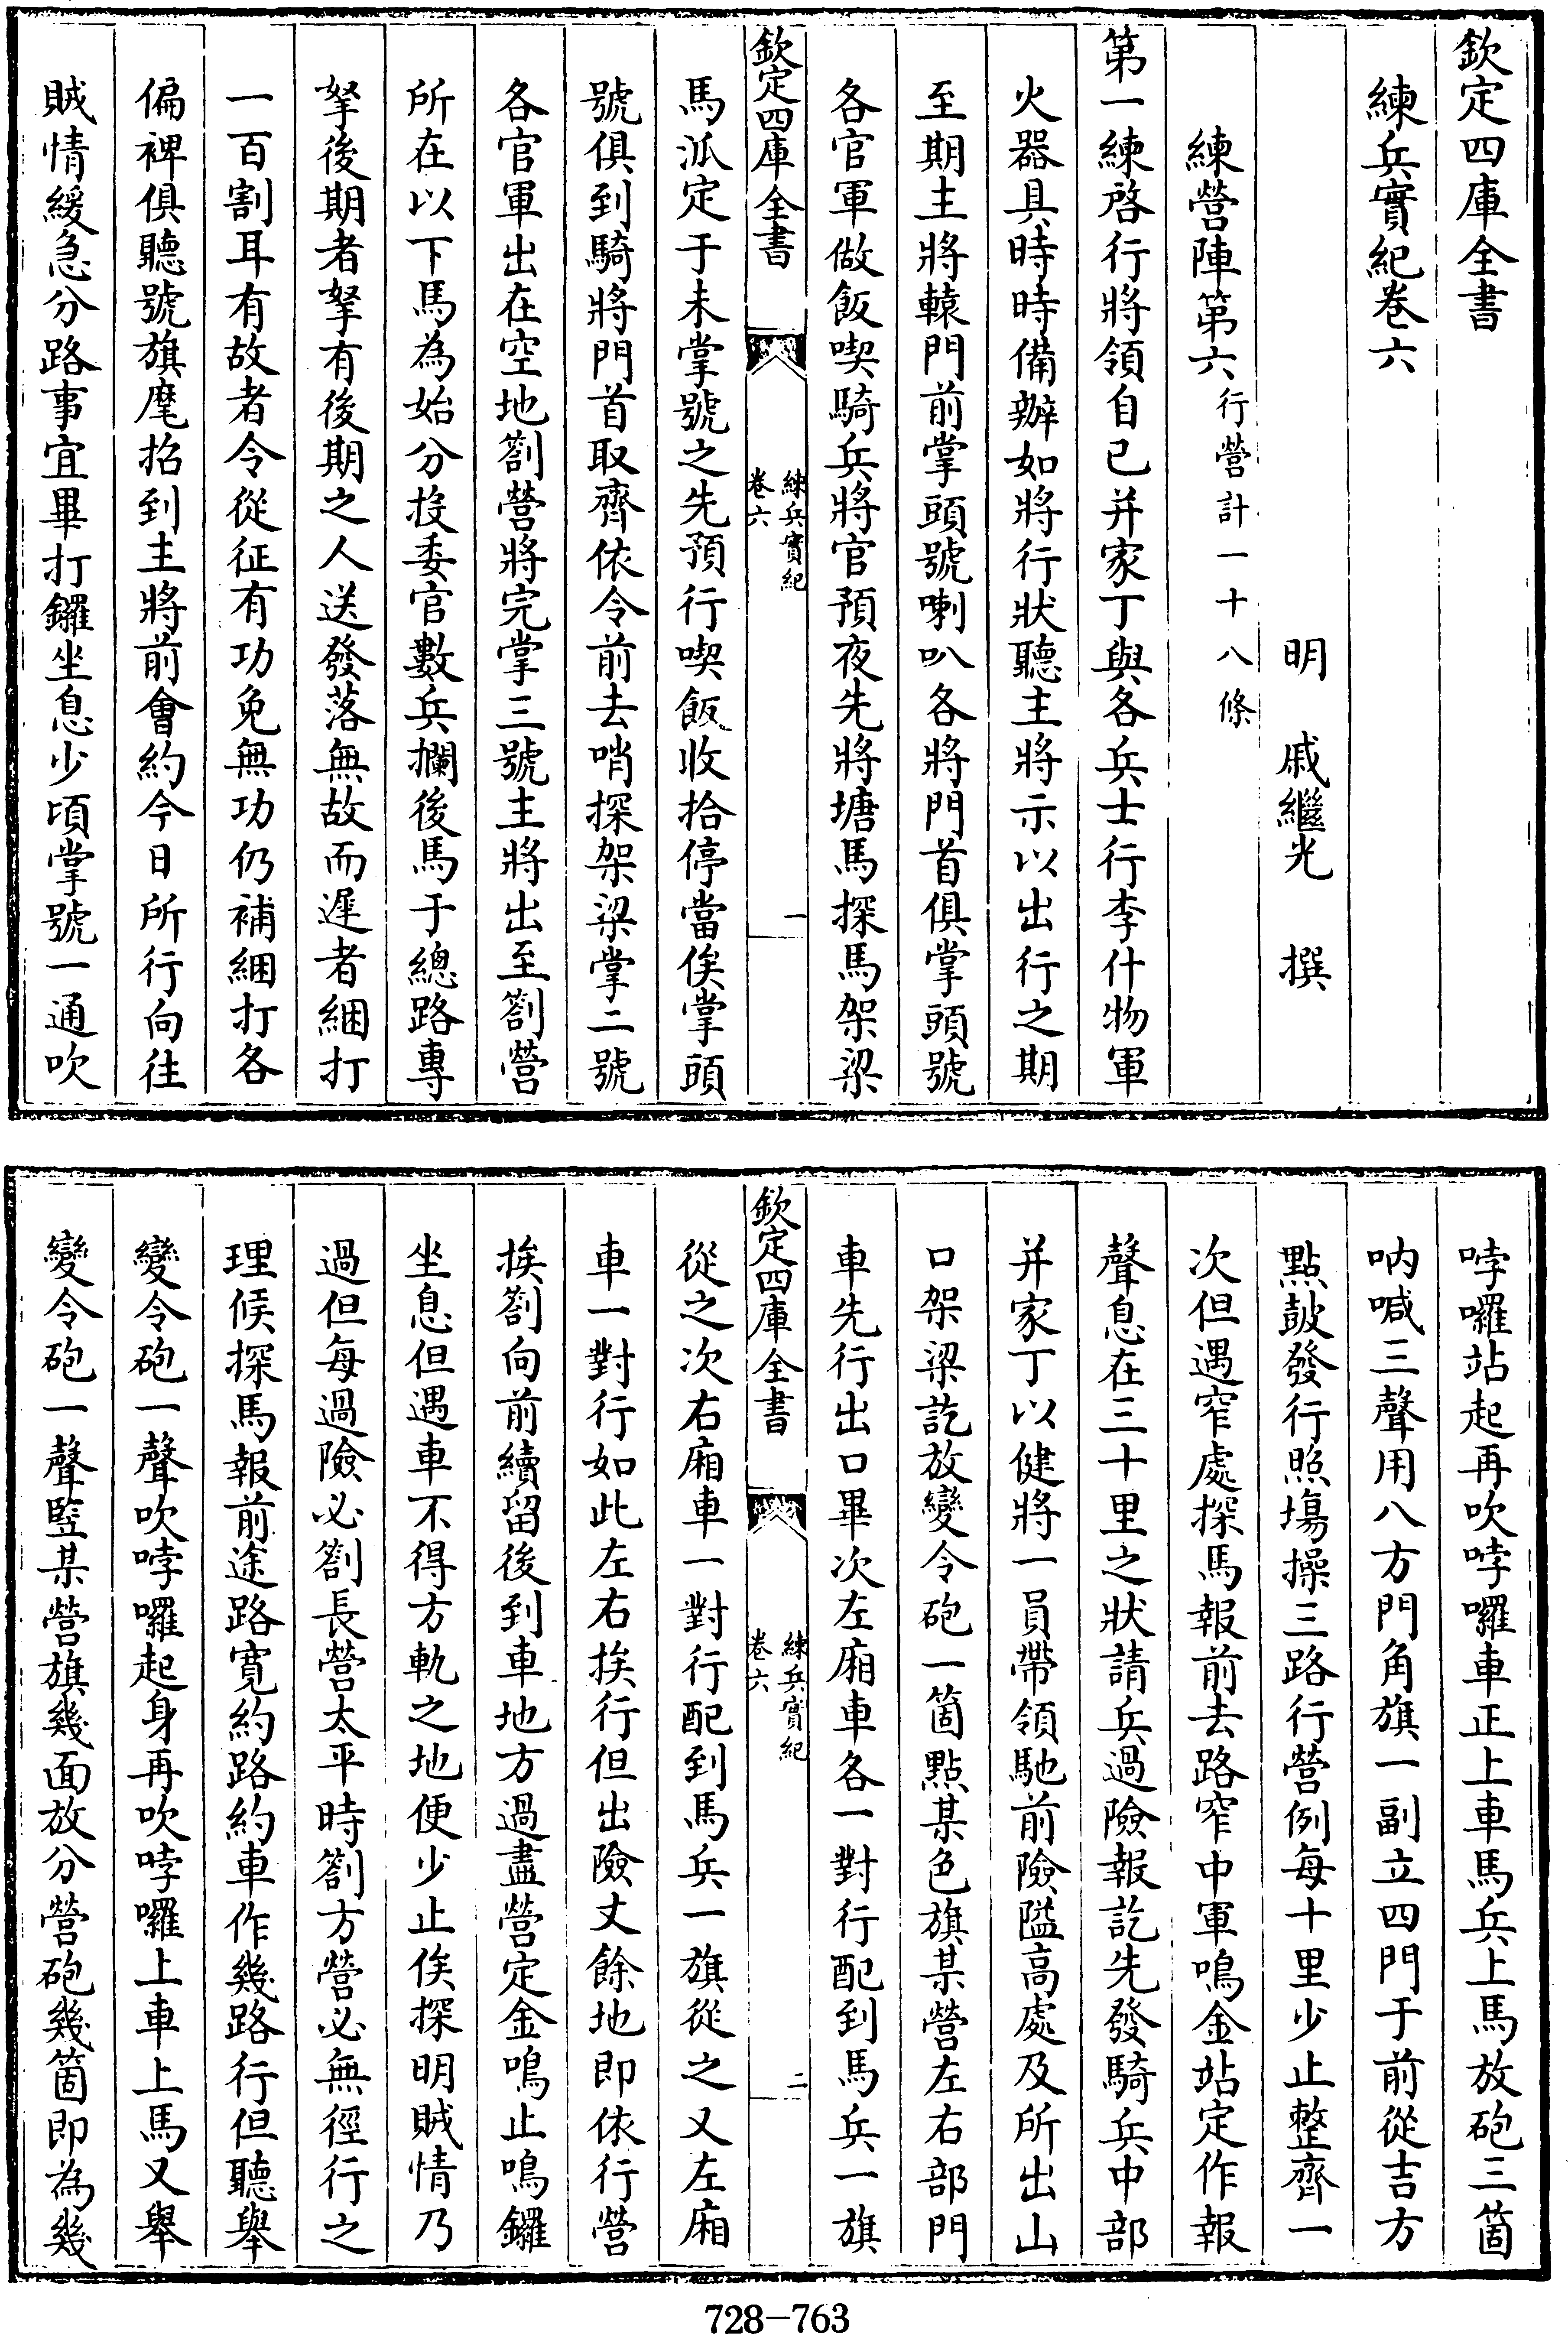 欽定四庫全書
練兵實紀卷六
明 戚繼光 撰
練營陣第六行營計一十八條
第一練啓行將領自己并家丁與各兵士行李什物軍
火器具時時備辦如將行狀聽主將示以出行之期
至期主將轅門前掌頭號喇叭各將門首俱掌頭號
各官軍做飯喫騎兵將官預夜先將塘馬探馬架梁
欽定四庫全書
練兵實紀
卷六
一
馬派定于未掌號之先預行喫飯收拾停當俟掌頭
號俱到騎將門首取齊依令前去哨探架梁掌二號
各官軍出在空地劄營將完掌三號主將出至劄營
所在以下馬為始分投委官數兵攔後馬于總路專
拏後期者拏有後期之人送發落無故而遲者綑打
一百割耳有故者令從征有功免無功仍補綑打各
偏裨俱聽號旗麾招到主將前會約今日所行向往
賊情緩急分路事宜畢打鑼坐息少頃掌號一通吹
哱囉站起再吹哱囉車正上車馬兵上馬放砲三箇
吶喊三聲用八方門角旗一副立四門于前從吉方
點鼓發行照塲操三路行營例每十里少止整齊一
次但遇窄處探馬報前去路窄中軍鳴金站定作報
聲息在三十里之狀請兵過險報訖先發騎兵中部
并家丁以健將一員帶領馳前險隘高處及所出山
口架梁訖放變令砲一箇點某色旗某營左右部門
車先行出口畢次左廂車各一對行配到馬兵一旗
欽定四庫全書
練兵實紀
卷六
二
從之次右廂車一對行配到馬兵一旗從之又左廂
車一對行如此左右挨行但出險丈餘地即依行營
挨劄向前續留後到車地方過盡營定金鳴止鳴鑼
坐息但遇車不得方軌之地便少止俟探明賊情乃
過但每過險必劄長營太平時劄方營必無徑行之
理候探馬報前途路寬約路約車作幾路行但聽舉
變令砲一聲吹哱囉起身再吹哱囉上車上馬又舉
變令砲一聲豎某營旗幾面放分營砲幾箇即為幾
728-763